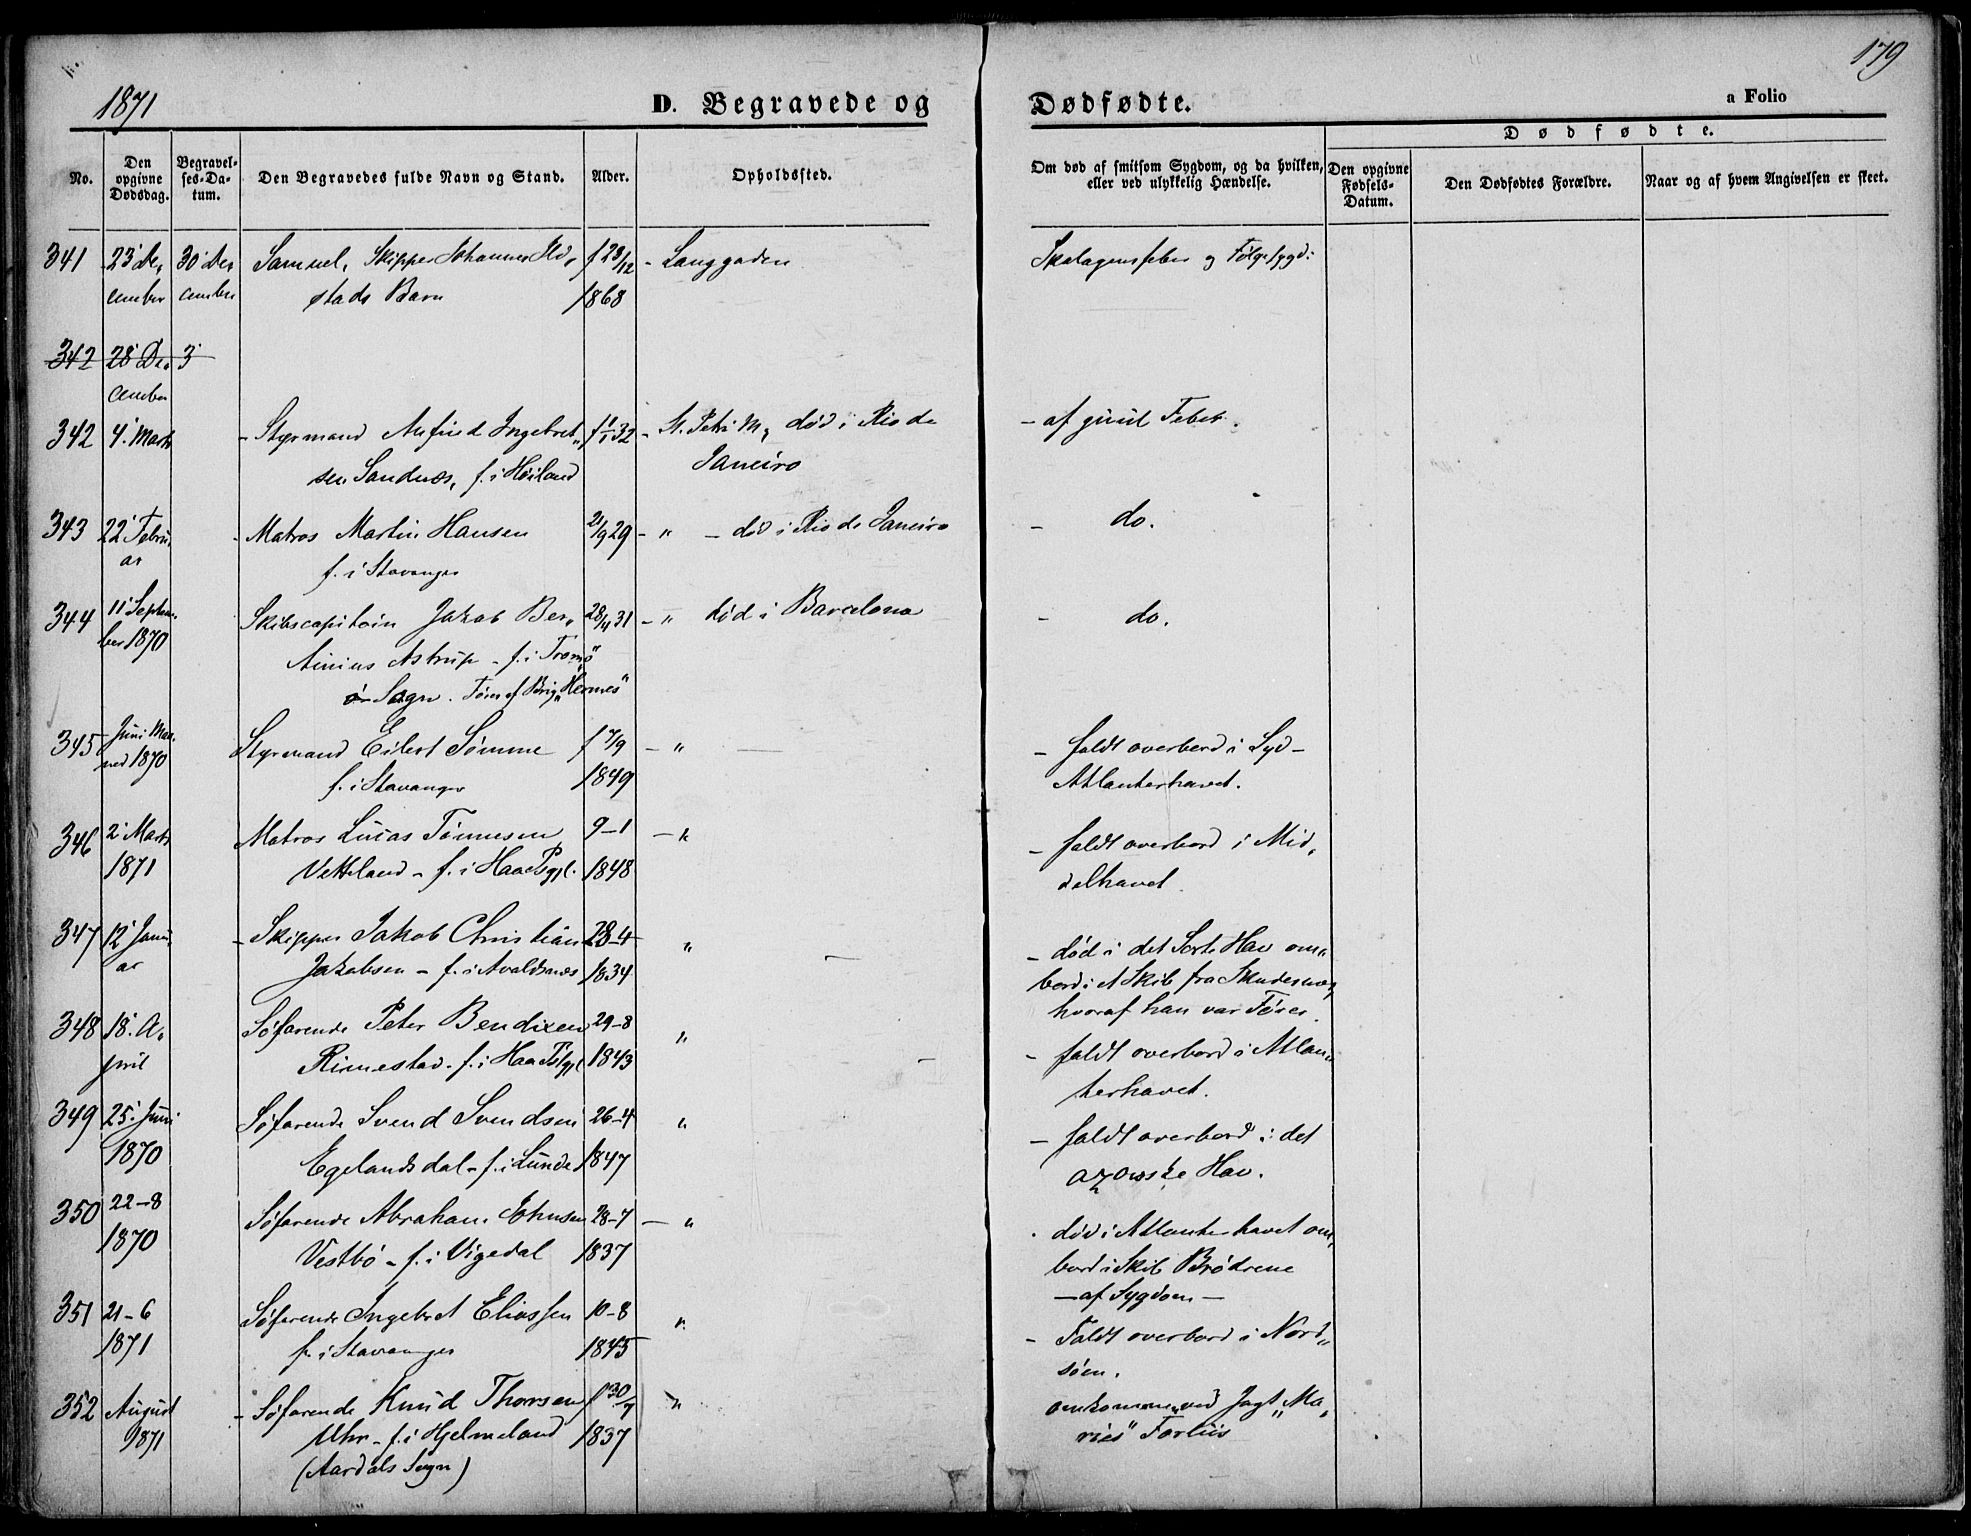 179
1871
D. Begravede og Dødfødte.
a Folio
Dødfødte.
No.
Den opgivne Dødsdag.
Begravelses-Datum.
Den Begravedes fulde Navn og Stand.
Alder.
Opholdssted.
Om død af smitsom Sygdom, og da hvilken, eller ved ulykkelig Hændelse.
Den opgivne Fødsels-Datum.
Den Dødfødtes Forældre.
Naar og af hvem Angivelsen er skeet.
341 23' De, 30' De, Samuel, Skipper Johannes f 23/12 - Langgaden Skalagensfeber og Følgesygd:
cember cember stads Barn 1868
342 28' De, 3'
cember
342 4' Marts - Styrmand Ingebret, f 1/1 32 - St. Petri M, død i Rio de - af guul Feber.
sen Sandnæs, f. i Høiland Janeiro
343 22' Febru, - Matros Martin Hansen 21/9 29 - " - død i Rio de Janeiro - do.
ar f. i Stavanger
344 11' Septem, Skibscapitain Jakob Ber, 28/4 31 - " død i Barcelona - do.
ber 1870 Astrup - f. i Tromø
Sogn. Fører af Brig "Hermes"
345 Juni Maa, Styrmand Eilert Sømme f 7/9 - " - faldt overbord i Syd-
ned 1870 f. i Stavanger 1849 Atlanterhavet.
346 2' Marts Matros Lucas Tønnesen 9-1 - " - faldt overbord i Mid,
1871 Vetteland - f. i Haa Pgjl. 1848 delhavet.
347 12' Janu, - Skipper Jakob Christian 28-4 " - død i det Sorte Hav om,
ar Jakobsen - f. i Avaldsnæs 1834 bord i et Skib fra Skudesnæs,
hvoraf han var Fører.
348 18' A, Søfarende Peter Bendixen 29-8 " - faldt overbord i Atlan,
pril Rimestad - f. i Haa Pstgjl 1843 terhavet.
349 25' Juni Søfarende Svend Svendsen 26-4 " - faldt overbord i det
1870 Egelandsdal - f. i Lunde 1847 azowske Hav.
350 22-8 Søfarende Abraham Johnsen 28-7 - " - død i Atlanterhavet om,
1870 Vestbø - f. i Vigedal 1837 bord i Skib Brødrene
- af Sygdom -
351 21-6 Søfarende Ingebret Eliassen 10-8 " - Faldt overbord i Nord,
1871 f. i Stavanger 1845 søen.
352 August - Søfarende Knud Thorsen f 30/7 " omkommen ved Jagt "Ma,
1871 Uhr - f. i Hjelmeland 1837 ries" Forliis
(Aardals Sogn)